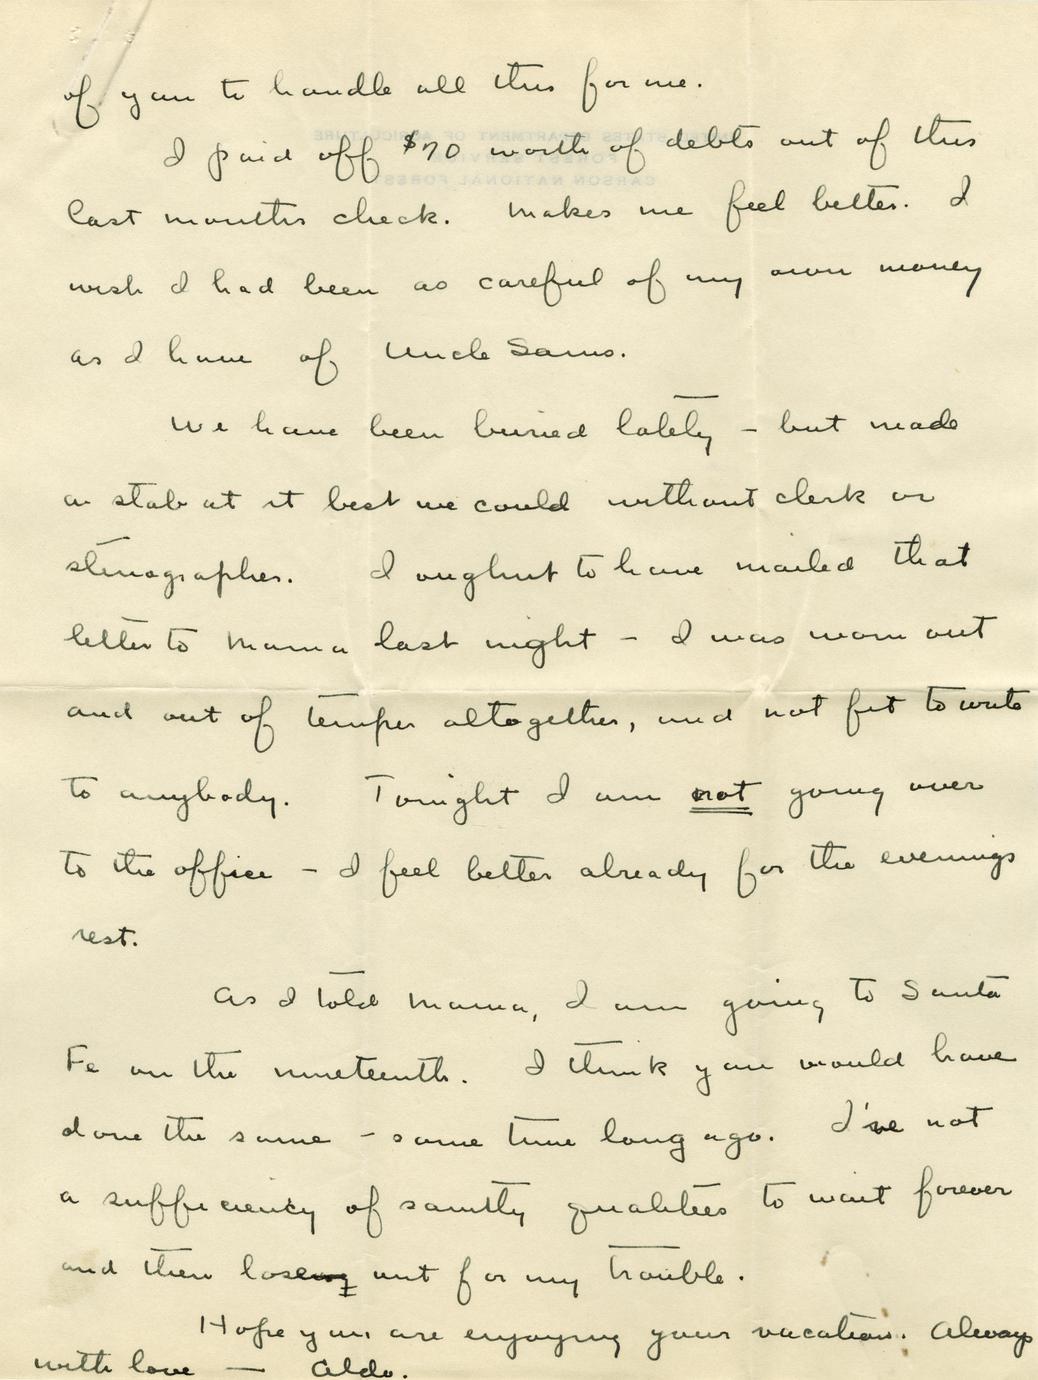 of you to handle all this for me.
I paid off $70 worth of debts out of this
last months check. Makes me feel better. I
wish I had been as careful of my own money
as I have of Uncle Sams.
We have been buried lately - but made
a stab at it best we could without clerk or
stenographer. I oughnt to have mailed that
letter to Mama last night - I was worn out
and out of temper altogether, and not fit to write
to anybody. Tonight I am not going over
to the office - I feel better already for the evenings
rest.
As I told Mama, I am going to Santa
Fe on the nineteenth. I think you would have
done the same - some time long ago. I've not
a sufficiency of saintly qualities to wait forever
and then lose out for my trouble.
Hope you are enjoying your vacation. Always
with love — Aldo.
UNITED STATES DEPARTMENT OF AGRICULTURE
FOREST SERVICE
CARSON NATIONAL FOREST